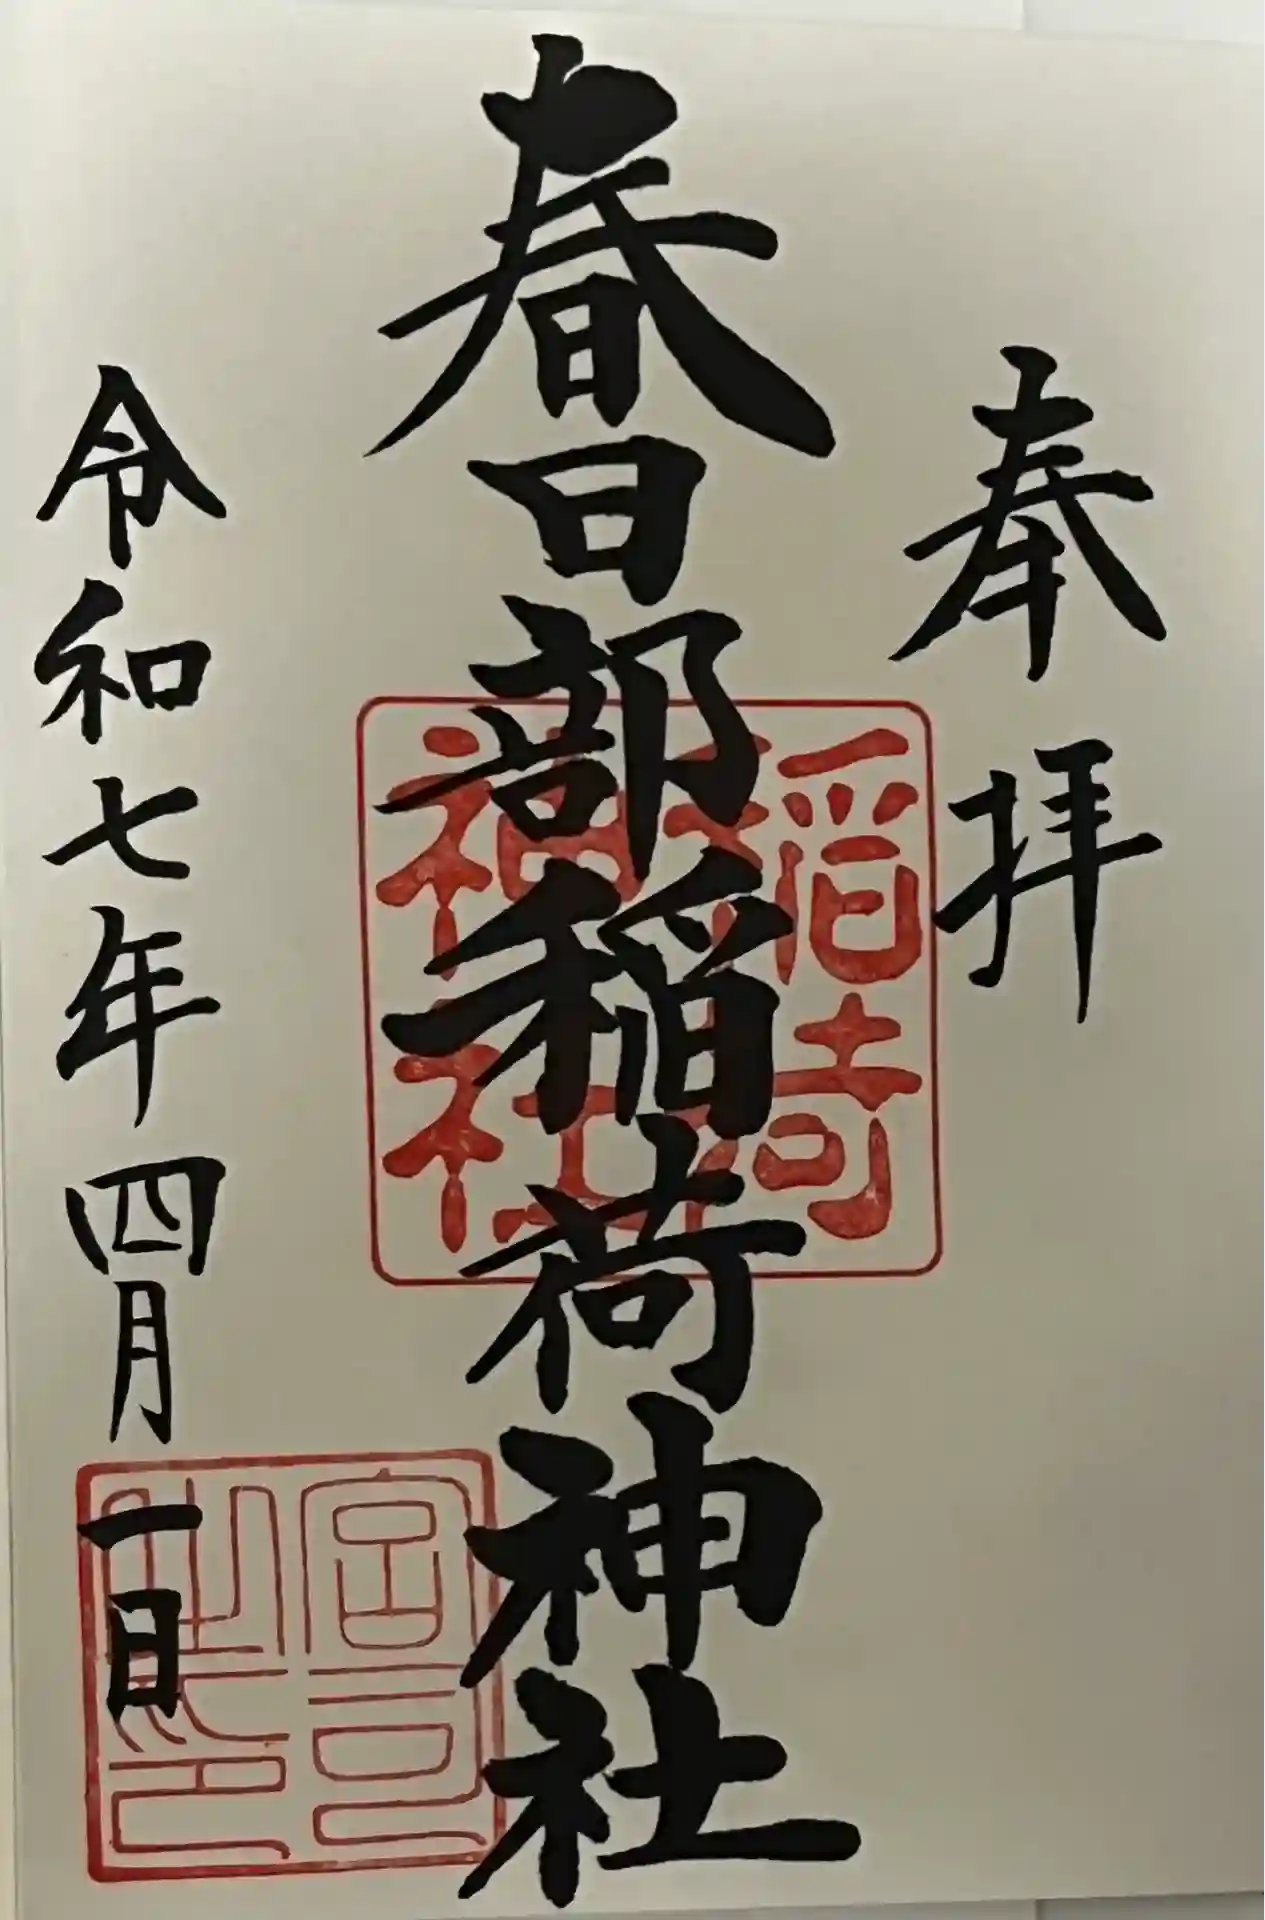 奉拝
春日部稲荷神社
稲荷神社
令和七年四月一日
宮司之印